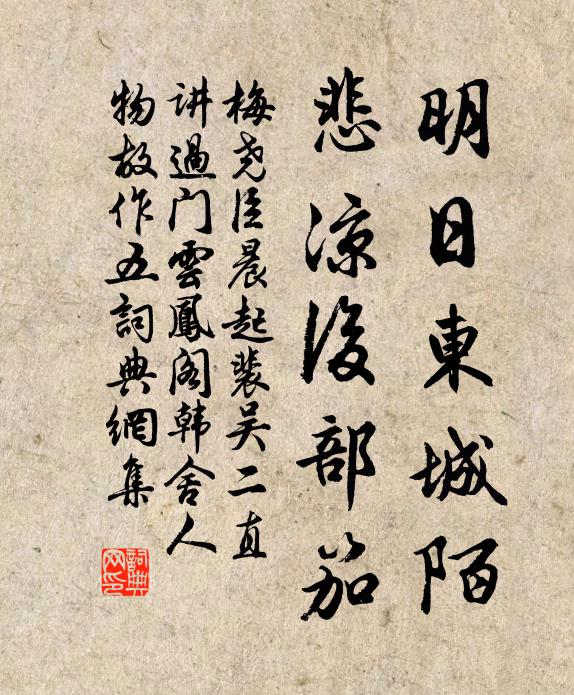 明日東城陌
悲凉後部笳
梅尧臣晨起裴吴二直
讲過门雲鳳阁韩舍人
物故作五詞典網集
詞典网印